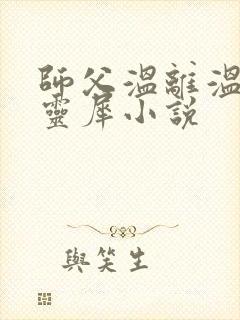 師父溫離溫
靈犀小說
與笑生